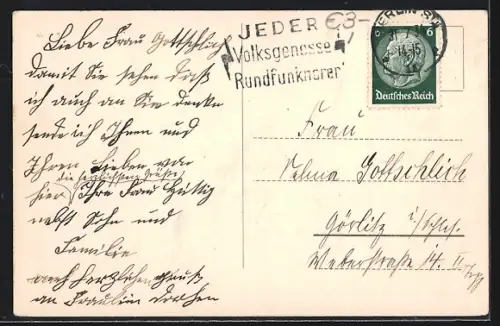 Liebe Frau Gottschlich
damit Sie sehen daß
ich auch an Sie denke
sende ich Ihnen und
Ihren Lieben von
die herzlichsten Grüße
hier Ihre Frau Hüttig
nebst Sohn und
Familie
auch herzlichen Gruß
an Fräulein
JEDER
Volksgenosse
Rundfunkhörer
BERLIN SW
6
Deutsches Reich
Frau
Selma Gottschlich
Görlitz i/Schles.
Weberstraße 14. II